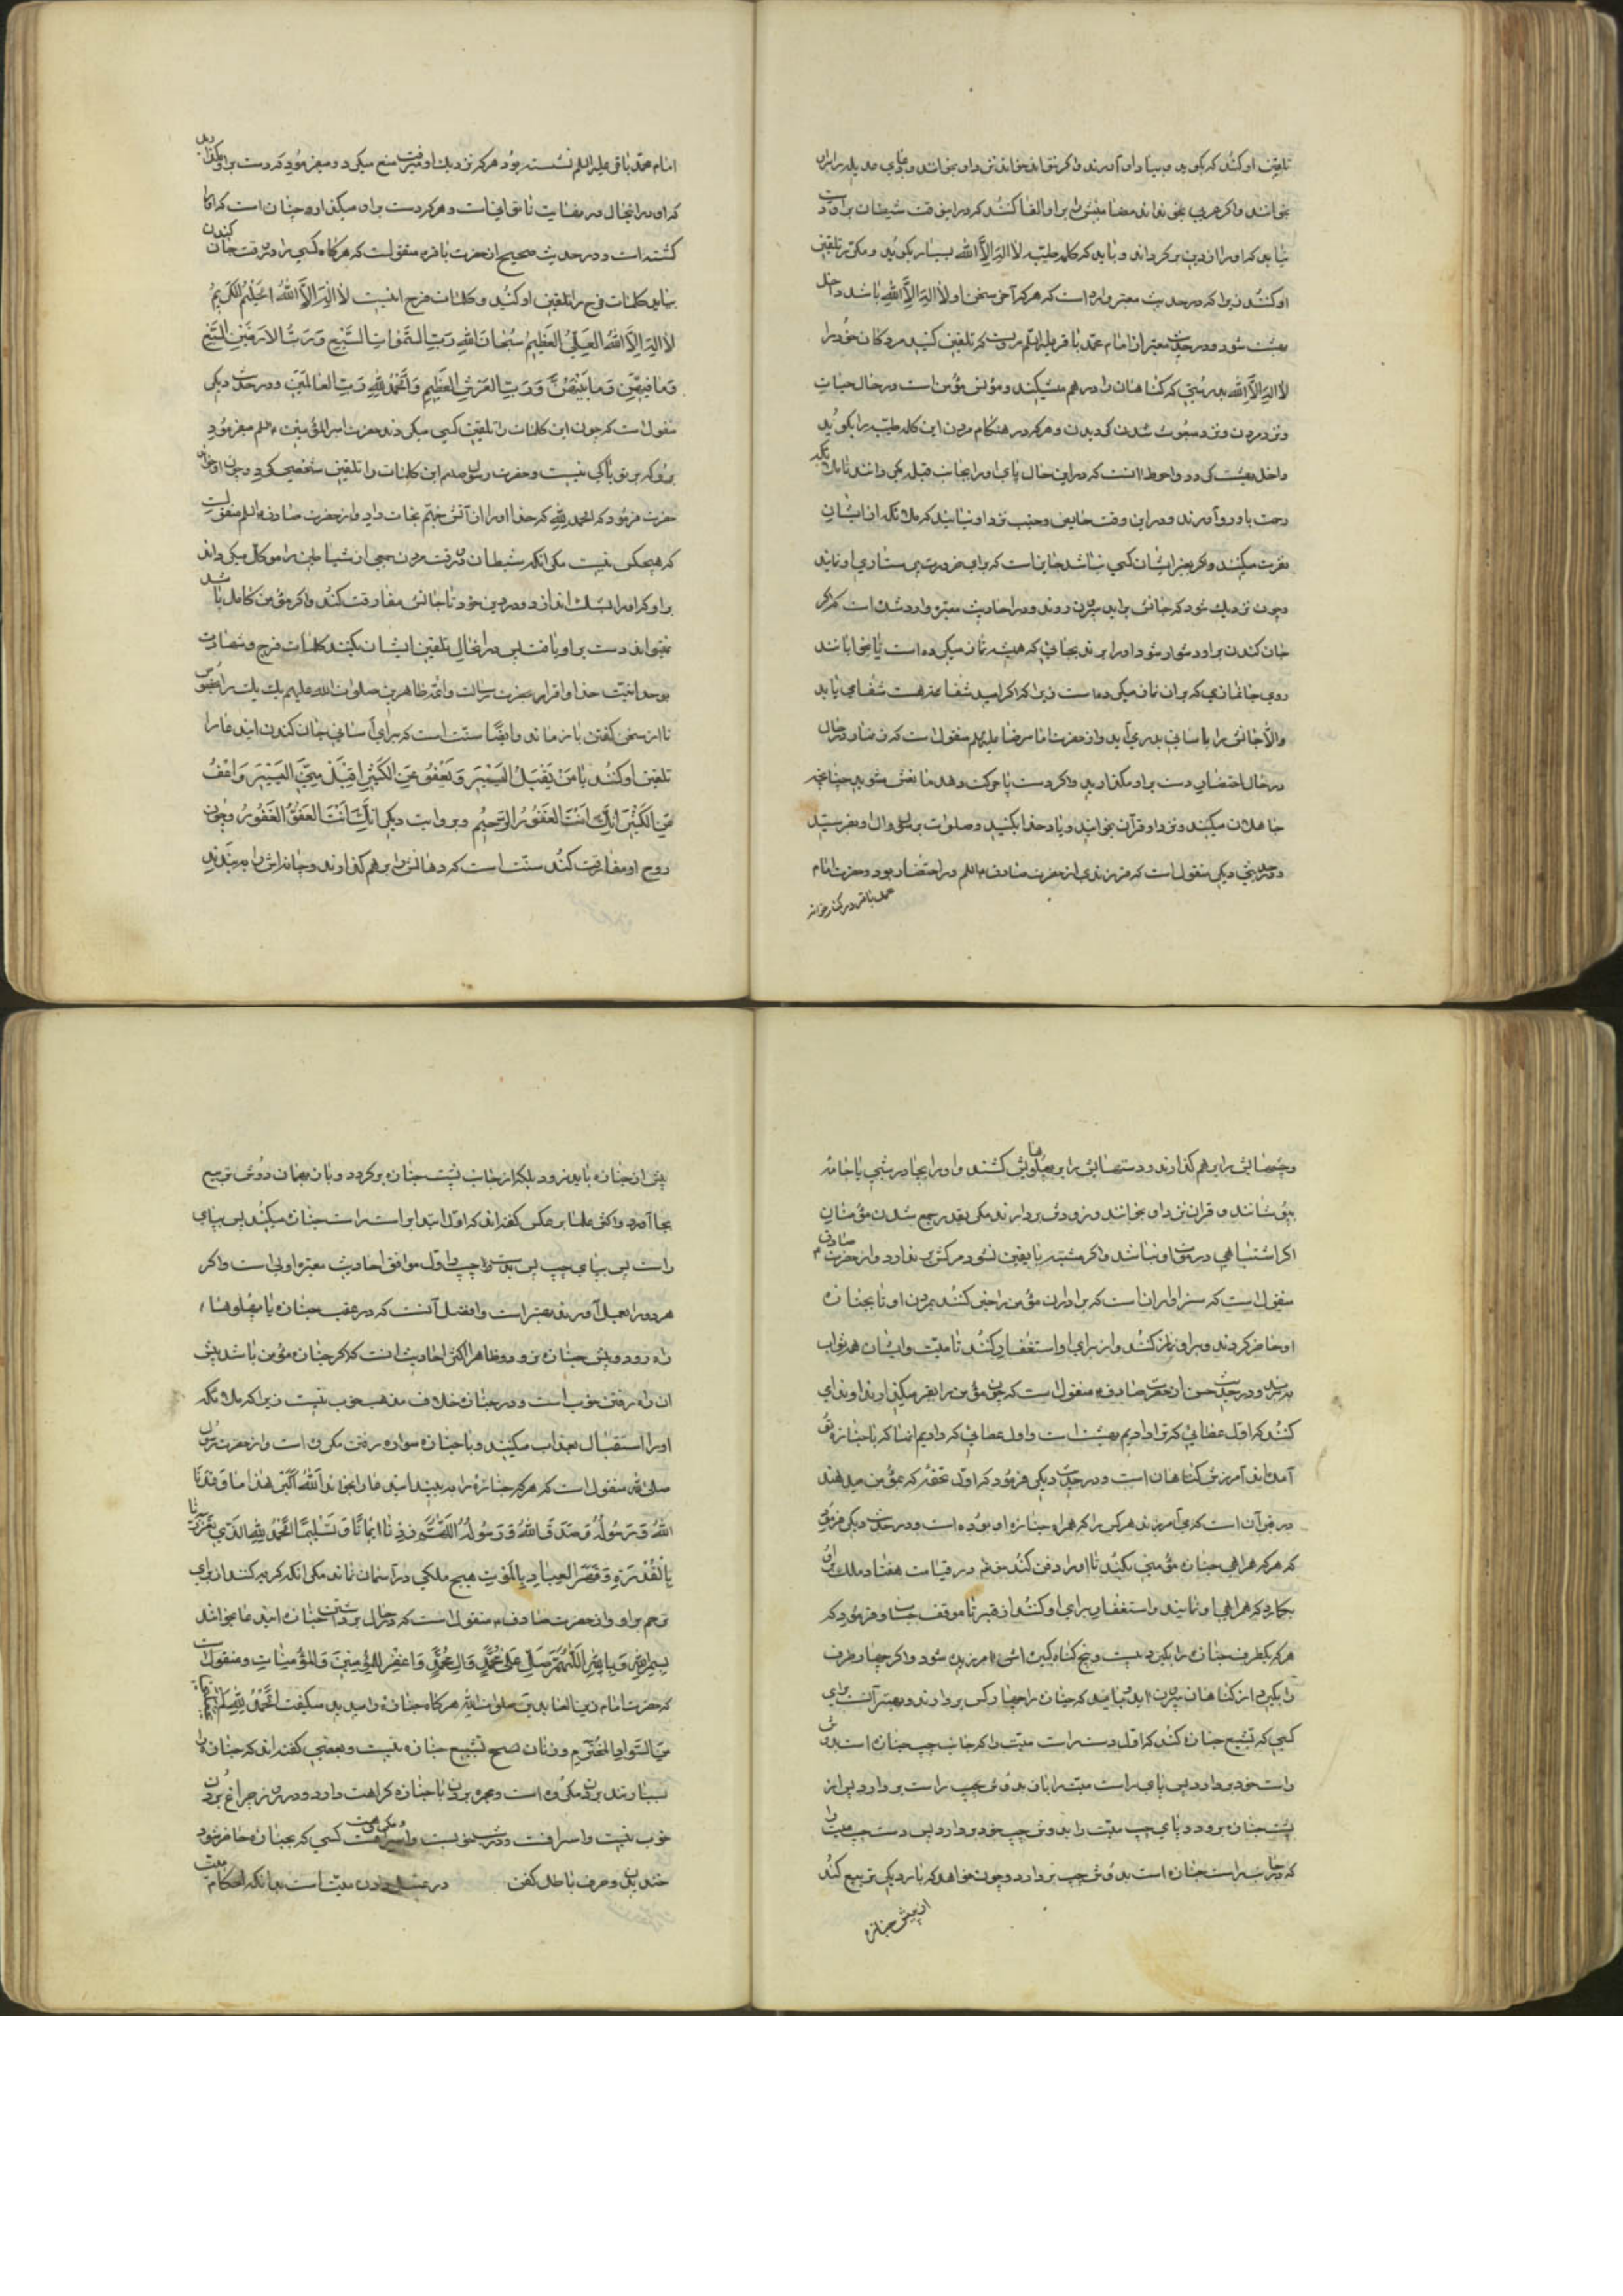 تلقین او کنند که بگوید و بسیار او آورند و اگر نتواند خواند نزد او بخوانند
بخوانند و اگر عربی نمی‌داند مضامینش را بر او القا کنند که در این وقت شیطان
نیاید که او را از دین برگرداند و باید که کلمه طیبه لا اله الا الله بسیار بگوید و مکرر تلقین
او کنند زیرا که در حدیث معتبر وارد است که هر که آخر سخن او لا اله الا الله باشد داخل
بهشت شود و در حدیث معتبر از امام محمد باقر علیه السلم مرویست که تلقین کنید مردگان خود را
لا اله الا الله بدرستی که گناهان را در هم میشکند و مونس مؤمن است در حال حیات
و نزد مردن و نزد مبعوث شدن و هر که در هنگام مردن این کلمه طیبه را بگوید
داخل بهشت گردد و احوط انست که در این حال پای او را بجانب قبله بگردانند تا ملائکه
رحمت باو رو آورند و در این وقت حایض و جنب نزد او نیایند که ملائکه از ایشان
نفرت میکنند و اگر بغیر ایشان کسی نباشد جایز است که برای ضرورت پرستاری او نمایند
و چون نزدیک شود که جانش برآید بیرون روند و در احادیث معتبره وارد شده است که اگر
جان کندن بر او دشوار شود او را برند بجائی که همیشه نماز میکرده است یا بخوابانند
روی جانمازی که بر ان نماز میکرده است زیرا که اگر امید شفا هست شفا می یابد
والا جانش را باسانی بدر می آید و از حضرت امام رضا علیه السلم منقول است که
در حال احتضار دست بر او مگذارید و اگر دست یا حرکت دهد مانعش مشوید چنانچه
جاهلان میکنند و نزد او قرآن بخوانید و یاد خدا بکنید و صلوات بر رسول و ال او بفرستید
و در حدیثی دیگر منقول است که فرزندی از حضرت صادق علیه السلم در احتضار بود و حضرت امام
محمد باقر در کنار خانه
امام محمد باقر علیه السلم نشسته بود هر که نزدیک او میرفت منع میکرد و میفرمود که دست بر او مگذارید
که او در اینحال در نهایت ناتوانی است و هر که دست بر او میگذارد چنان است که او را
کشته است و در حدیث صحیح از حضرت باقر منقولست که هرگاه کسی را در وقت جان کندن
بیابید کلمات فرج را تلقین او کنید و کلمات فرج اینست لا اله الا الله الحلیم الکریم
لا اله الا الله العلی العظیم سبحان الله رب السموات السبع و رب الارضین السبع
و ما فیهن و ما بینهن و رب العرش العظیم و الحمد لله رب العالمین و در حدیث دیگر
منقول است که چون این کلمات را تلقین کسی میکردند حضرت امیر المؤمنین میفرمود
برو که بر تو باکی نیست و حضرت رسول صلعم این کلمات را تلقین شخصی کرد و چون او خواند
حضرت فرمود که الحمد لله که خدا او را از آتش جهنم نجات داد و از حضرت صادق علیه السلم منقولست
که هیچکس نیست مگر انکه شیطان در وقت مردن جمعی از شیاطین را موکل میگرداند
بر او که او را بشک اندازد در دین خود تا جانش مفارقت کند و اگر مؤمن کامل باشد
نمیتواند دست بر او یافت پس در اینحال تلقین ایشان بکنید کلمات فرج و شهادت
بوحدانیت خدا و اقرار بحضرت رسالت و ائمه طاهرین صلوات الله علیهم یک یک را بخصوص
تا از سخن گفتن باز ماند و ایضا سنت است که برای آسانی جان کندن این دعا را
تلقین او کنند یا من یقبل الیسیر و یعفو عن الکثیر اقبل منی الیسیر و اعف
عنی الکثیر انک انت الغفور الرحیم و بروایت دیگر انک انت العفو الغفور و چون
روح او مفارقت کند سنت است که دهانش را بر هم گذارند و چانه اش را به بندند
و چشمهایش را بر هم گذارند و دستهایش را بر پهلوهایش کشند و او را بچادر شبی یا جامه
بپوشانند و قران نزد او بخوانند و زود بردارند مگر بقدر جمع شدن مؤمنان
اگر اشتباهی در موت او نباشد و اگر مشتبه تا یقین نشود مرگش بر ندارند و از حضرت صادق
منقول است که سزاوار است که برادران مؤمن را خبر کنند بمردن او تا بجنازه
او حاضر گردند و بر او نماز کنند و از برای او استغفار کنند تا میت و ایشان همه ثواب
برند و در حدیث حسن از حضرت صادق منقول است که چون مؤمن را بقبر میگذارند او را ندا
کنند که اول عطائی که ترا دادیم بهشت است و اول عطائی که دادیم انها که با جنازه تو
آمده اند آمرزش گناهان است و در حدیث دیگر فرمود که اول تحفه که بمؤمن میدهند
در قبر آن است که می آمرزند هر کس را که همراه جنازه او بوده است و در حدیث دیگر فرمود
که هر که همراهی جنازه مؤمنی بکند تا او را دفن کنند حق تعالی در قیامت هفتاد ملک را
بگمارد که همراهی او نمایند و استغفار برای او کنند از قبر تا موقف حساب و فرمود که
هر که یکطرف جنازه را بگیرد بیست و پنج گناه کبیره اش آمرزیده شود و اگر چهار طرف
را بگیرد از گناهان بیرون اید و باید که جنازه را چهار کس بردارند و بهتر آنست برای
کسی که تشییع جنازه کند که اول دست راست میت را که جانب چپ جنازه است بدوش
راست خود بردارد پس پای راست میت را باز بدوش راست بردارد پس از
پشت جنازه برود و پای چپ میت را بدوش چپ خود بردارد پس دست چپ میت را
که جانب راست جنازه است بدوش چپ بردارد و چون خواهد که بار دیگر تربیع کند
از پیش جنازه
پیش از جنازه باید نرود بلکه از جانب پشت جنازه برگردد و باز بهمان روش تربیع
بجا آورد و اکثر علما بر عکس گفته اند که اول ابتدا بر دست راست جنازه میکند پس بپای
راست پس بپای چپ پس بدست چپ و اول موافق احادیث معتبره اولی است و اگر
هر دو را بعمل آورند بهتر است و افضل آنست که در عقب جنازه یا پهلوهای
راه رود و پیش جنازه نرود و ظاهر اکثر احادیث انست که اگر جنازه مؤمن باشد پیش
ان راه رفتن خوب است و در جنازه خلاف مذهب خوب نیست زیرا که ملائکه
او را استقبال بعذاب میکنند و با جنازه سواره رفتن مکروه است و از حضرت رسول
صلی الله منقول است که هر که جنازه را به بیند این دعا را بخواند الله اکبر هذا ما وعدنا
الله و رسوله و صدق الله و رسوله اللهم زدنا ایمانا و تسلیما الحمد لله الذی تعزز
بالقدرة و قهر العباد بالموت هیچ ملکی در آسمان نماند مگر انکه گریه کند از برای
ترحم بر او و از حضرت صادق منقول است که در حال برداشتن جنازه این دعا بخوانند
بسم الله و بالله اللهم صل علی محمد و آل محمد و اغفر للمؤمنین و المؤمنات و منقولست
که حضرت امام زین العابدین صلوات الله هرگاه جنازه را میدید میگفت الحمد لله الذی
من السواد المخترم و زنان تشییع جنازه نیست و بعضی گفته اند که جنازه را
بردن مکروه است و مجمره بردن با جنازه کراهت دارد و در روز چراغ بردن
خوب نیست و اسرافست و در شب خوبست و مکروهست کسی که بجنازه حاضر شود
خندیدن و حرف باطل گفتن در غسل دادن میت است بدانکه احکام میت